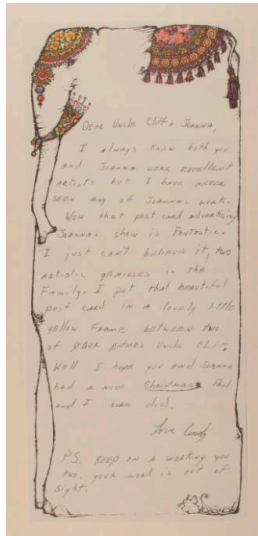 Dear Uncle Cliff & Joanna,
I always knew both you
and Joanna were excellent
artists but I have never
seen any of Joanna's work.
Wow that post card advertising
Joanna's show is Fantastic.
I just can't believe it, two
artistic geniuses in the
Family. I put that beautiful
post card in a lovely little
yellow Frame between two
of your pictures Uncle Cliff.
Well I hope you and Joanna
had a nice Christmas. Paul
and I sure did.
Love
P.S. Keep on a working you
two, your work is out of
sight.